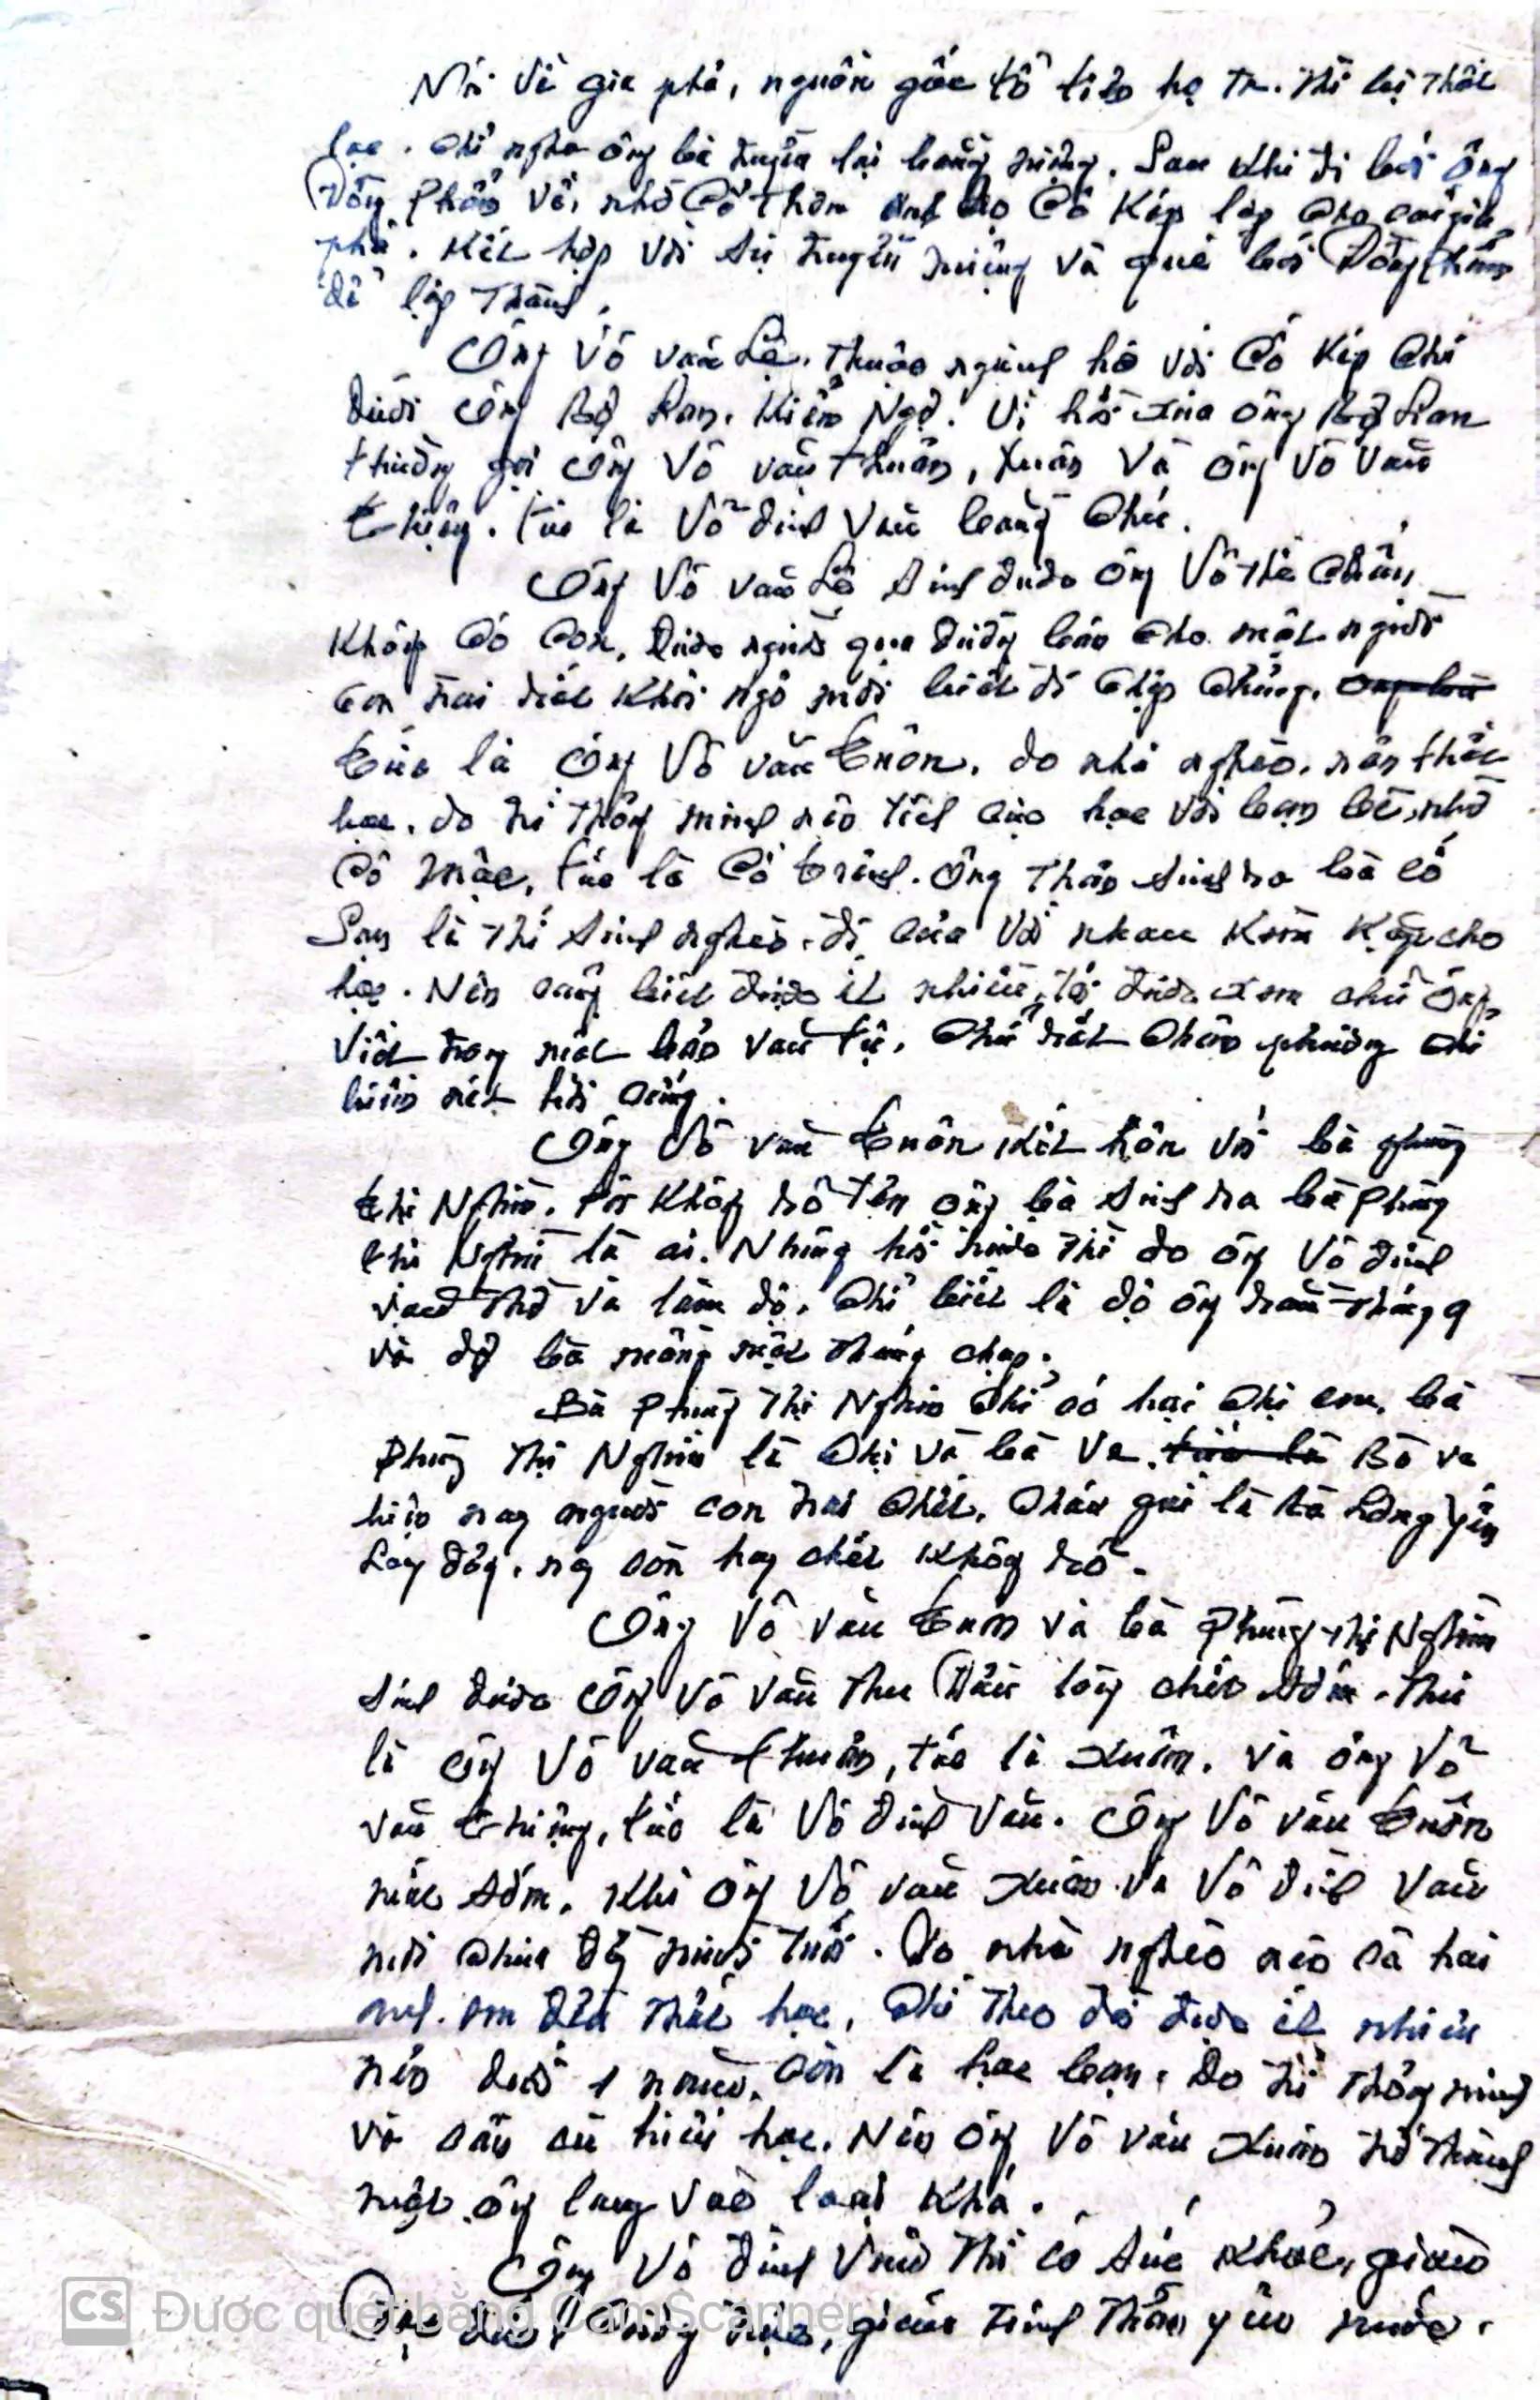 Nói về gia phả, nguồn gốc tổ tiên họ ta. Thì bị thất
lạc. Chỉ nghe ông bà truyền lại bằng miệng. Sau khi đi bói ông
Đồng Phán về, nhờ Cố Thơn anh họ Cố Kíp lập cho cái gia
phả. Kết hợp với sự truyền miệng và quẻ bói Đồng Phán
để lập thành.
Ông Võ văn Lệ. Thuộc ngành họ với Cố Kíp Chú
dưới ông Bộ Lan. Kiểm Ngợ. Vì hồi xưa ông Bộ Lan
thường gọi ông Võ văn Thuân, Xuân và ông Võ văn
Thiệng. tức là Võ đình Văn bằng Chú.
Ông Võ văn Lệ sinh được ông Võ Thị
Không có con, được người qua đường bán cho một người
con trai rất khôi ngô mới biết đi chập chững.
tức là ông Võ văn Tuôn. do nhà nghèo. nên thất
học. do trí thông minh nên tích cực học với bạn bè, như
Cố Mậu, tức là Cố Trinh. Ông Thản sinh ra bà cố
San là thí sinh nghèo. đi với nhau kèm kặp cho
học. Nên cũng biết được ít nhiều, tôi được xem chữ ông
Viết trong một bản văn tự. Chữ rất chân phương chỉ
hiềm nét hơi cứng.
Ông Võ văn Tuôn kết hôn với bà Phùng
thị Nghiên. tôi không rõ tên ông bà sinh ra bà Phùng
thị Nghiên là ai. Nhưng hồi trước thì do ông Võ đình
Văn thờ và làm dỗ. Chỉ biết là dỗ ông rằm tháng 9
và dỗ bà mồng một tháng chạp.
Bà Phùng Thị Nghiên chỉ có hai chị em. bà
Phùng Thị Nghiên là chị và bà Va. Bà va
hiện nay người con trai chết. Cháu gái là bà Hồng Yên
Lay động. nay còn hay chết không rõ.
Ông Võ văn Tuôn và bà Phùng Thị Nghiên
sinh được ông Võ văn Thu đầu lòng chết sớm. Thứ
là ông Võ văn Thuân, tức là Xuân. và ông Võ
văn Thiệng, tức là Võ đình Văn. Ông Võ văn Tuôn
mất sớm. Khi ông Võ văn Xuân và Võ đình Văn
mới chưa đầy mười tuổi. Do nhà nghèo nên cả hai
anh. em đều thất học. Chỉ theo đòi được ít nhiều
nên dưới 1 năm. còn là học bạn. Do trí thông minh
và cần cù hiếu học. Nên ông Võ văn Xuân trở thành
một ông lang vào loại khá.
Ông Võ đình Văn thì có sức khỏe, giàu
trực, giàu tinh thần yêu nước.
CS Được quét bằng CamScanner